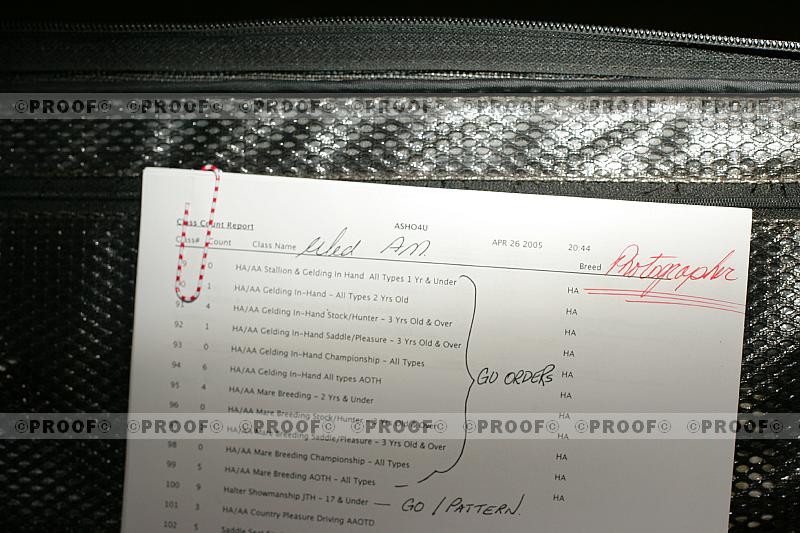 ©PROOF© ©PROOF© ©PROOF© ©PROOF© ©PROOF© ©PROOF© ©PROOF©
ASHO4U
Class Count Report APR 26 2005 20:44
Class# Count Class Name Wed AM. Breed Photographer
89 0 HA/AA Stallion & Gelding In Hand All Types 1 Yr & Under HA
90 1 HA/AA Gelding In-Hand - All Types 2 Yrs Old HA
91 4 HA/AA Gelding In-Hand Stock/Hunter - 3 Yrs Old & Over HA
92 1 HA/AA Gelding In-Hand Saddle/Pleasure - 3 Yrs Old & Over HA
93 0 HA/AA Gelding In-Hand Championship - All Types HA
94 6 HA/AA Gelding In-Hand All types AOTH GO ORDERS HA
95 4 HA/AA Mare Breeding - 2 Yrs & Under HA
96 0 HA/AA Mare Breeding Stock/Hunter - 3 Yrs Old & Over HA
HA/AA Mare Breeding Saddle/Pleasure - 3 Yrs Old & Over HA
©PROOF© ©PROOF© ©PROOF© ©PROOF© ©PROOF© ©PROOF© ©PROOF©
98 0 HA/AA Mare Breeding Championship - All Types HA
99 5 HA/AA Mare Breeding AOTH - All Types HA
100 9 Halter Showmanship JTH - 17 & Under — GO / PATTERN. HA
101 3 HA/AA Country Pleasure Driving AAOTD
102 5 Saddle Seat